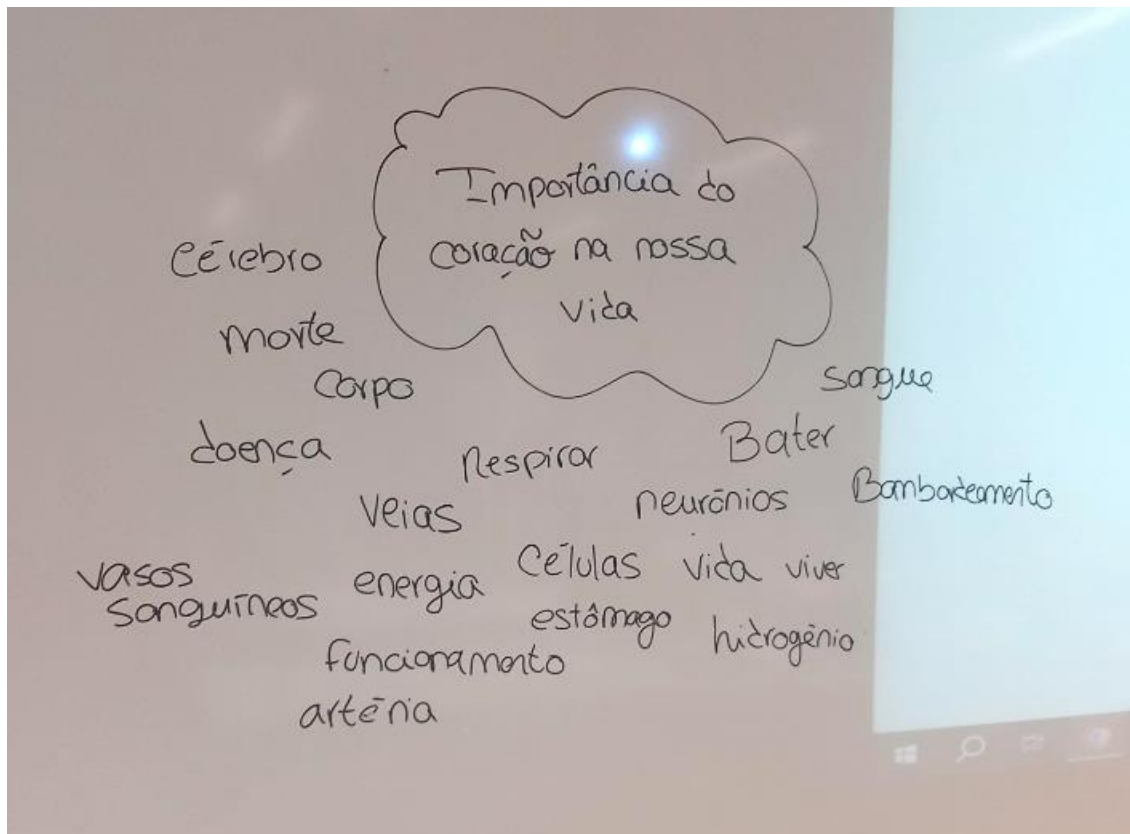 Importância do
coração na nossa
vida
cérebro
morte
corpo
sangue
doença
Respirar
Bater
veias
neurónios
Bombardeamento
vasos
sanguíneos
energia
células
vida
viver
estômago
hidrogénio
funcionamento
artéria